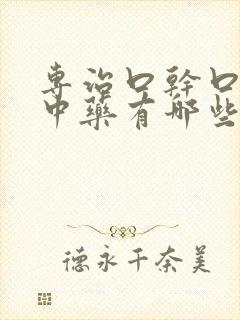 専治口幹口
中藥有哪些
德永千奈美